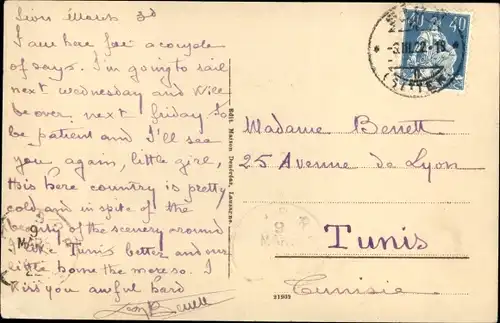 Sion March 3d
I am here for a couple
of days. I'm going to sail
next Wednesday and Will
be over next friday. So
be patient and I'll see
you again, little girl,
this here country is pretty
cold and in spite of the
beauty of the scenery around
I like Tunis better and our
little home the more so. I
Kiss you awful hard
Edit. Maison Deuréaz, Lausanne.
21952
40 40
-3.III.22.-18
(SITTEN)
Madame Berrett
25 Avenue de Lyon
Tunis
Tunisie